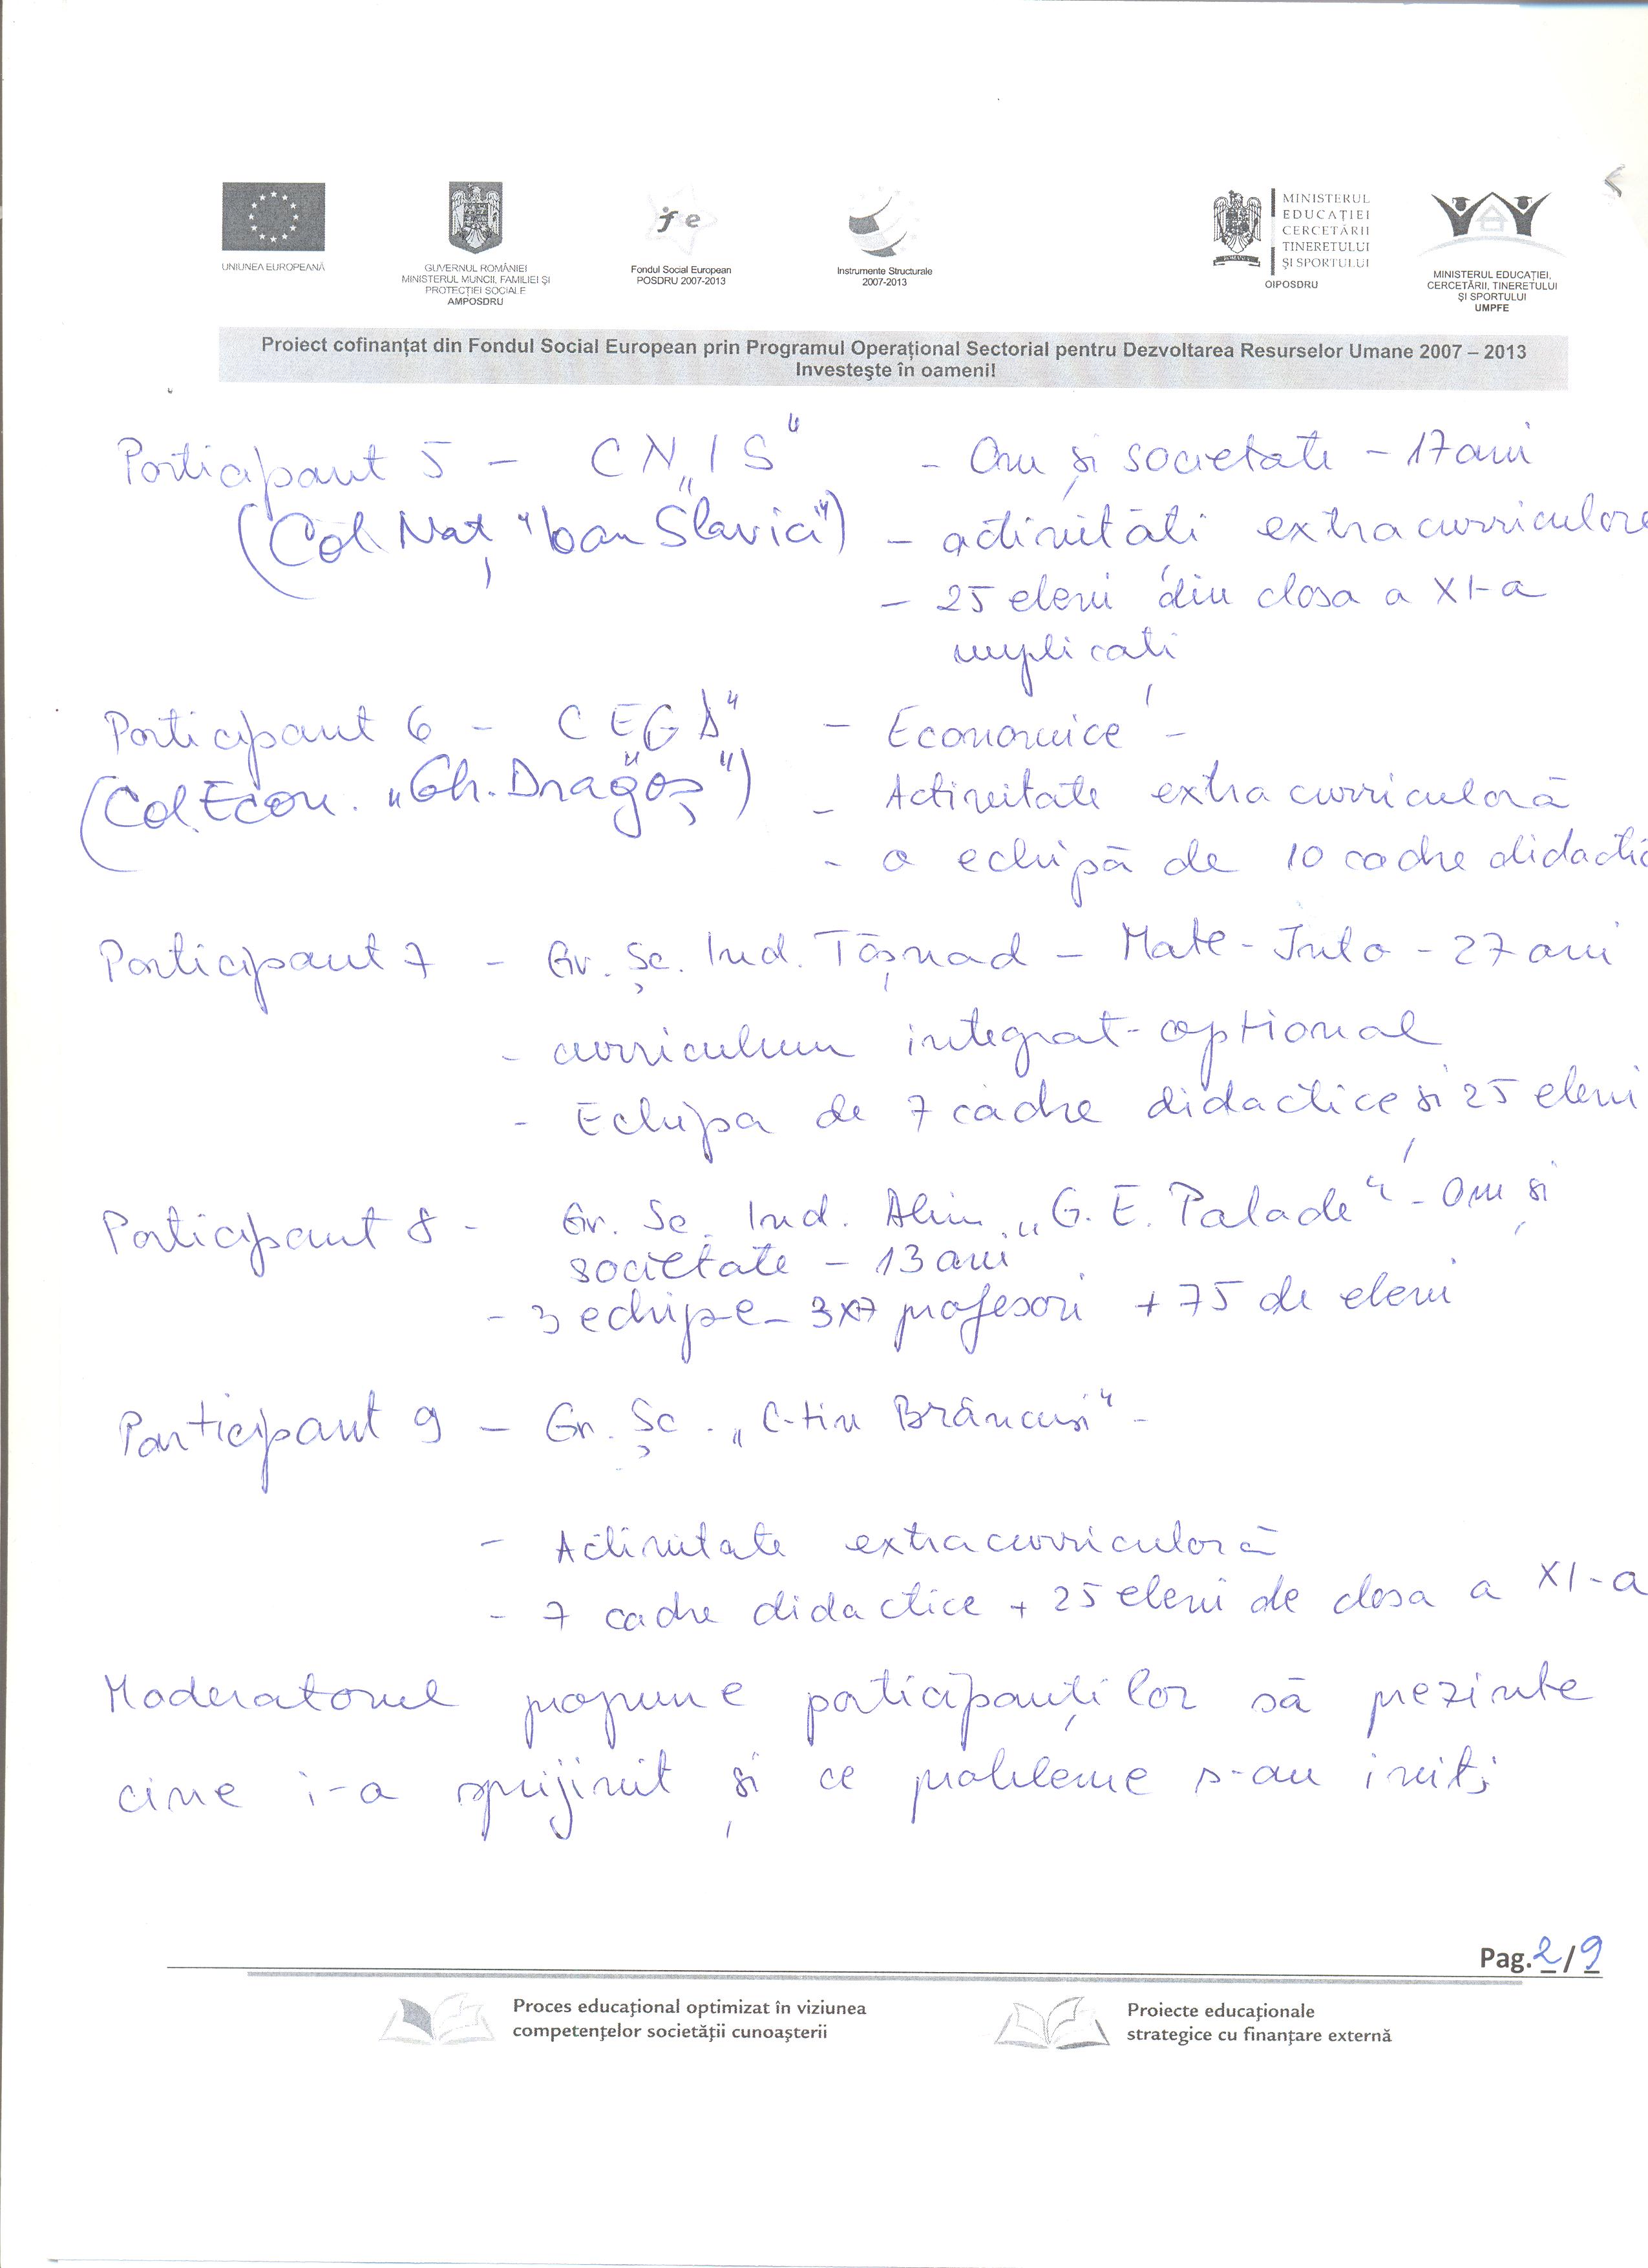 UNIUNEA EUROPEANĂ
GUVERNUL ROMÂNIEI
MINISTERUL MUNCII, FAMILIEI ŞI
PROTECŢIEI SOCIALE
AMPOSDRU
fse
Fondul Social European
POSDRU 2007-2013
Instrumente Structurale
2007-2013
MINISTERUL
EDUCAŢIEI
CERCETĂRII
TINERETULUI
ŞI SPORTULUI
OIPOSDRU
MINISTERUL EDUCAŢIEI,
CERCETĂRII, TINERETULUI
ŞI SPORTULUI
UMPFE
Proiect cofinanţat din Fondul Social European prin Programul Operaţional Sectorial pentru Dezvoltarea Resurselor Umane 2007 – 2013
Investeşte în oameni!
Participant 5 – CN „IS" – Om și societate – 17 ani
(Col. Naț. "Ioan Slavici") – activități extracurriculare
– 25 elevi din clasa a XI-a
implicați
Participant 6 – CEGD" – Economice –
(Col. Econ. „Gh. Dragoș") – Activitate extracurriculară
– o echipă de 10 cadre didactic
Participant 7 – Gr. Șc. Ind. Tășnad – Mate-Info – 27 ani
– curriculum integrat-opțional
– Echipa de 7 cadre didactice și 25 elevi
Participant 8 – Gr. Sc. Ind. Alim. „G. E. Palade" – Om și
societate – 13 ani
– 3 echipe – 3x7 profesori + 75 de elevi
Participant 9 – Gr. Șc. „C-tin Brâncuși" –
– Activitate extracurriculară
– 7 cadre didactice + 25 elevi de clasa a XI-a
Moderatorul propune participanților să prezinte
cine i-a sprijinit și ce probleme s-au ivit;
Pag. 2/9
Proces educaţional optimizat în viziunea
competenţelor societăţii cunoaşterii
Proiecte educaţionale
strategice cu finanţare externă